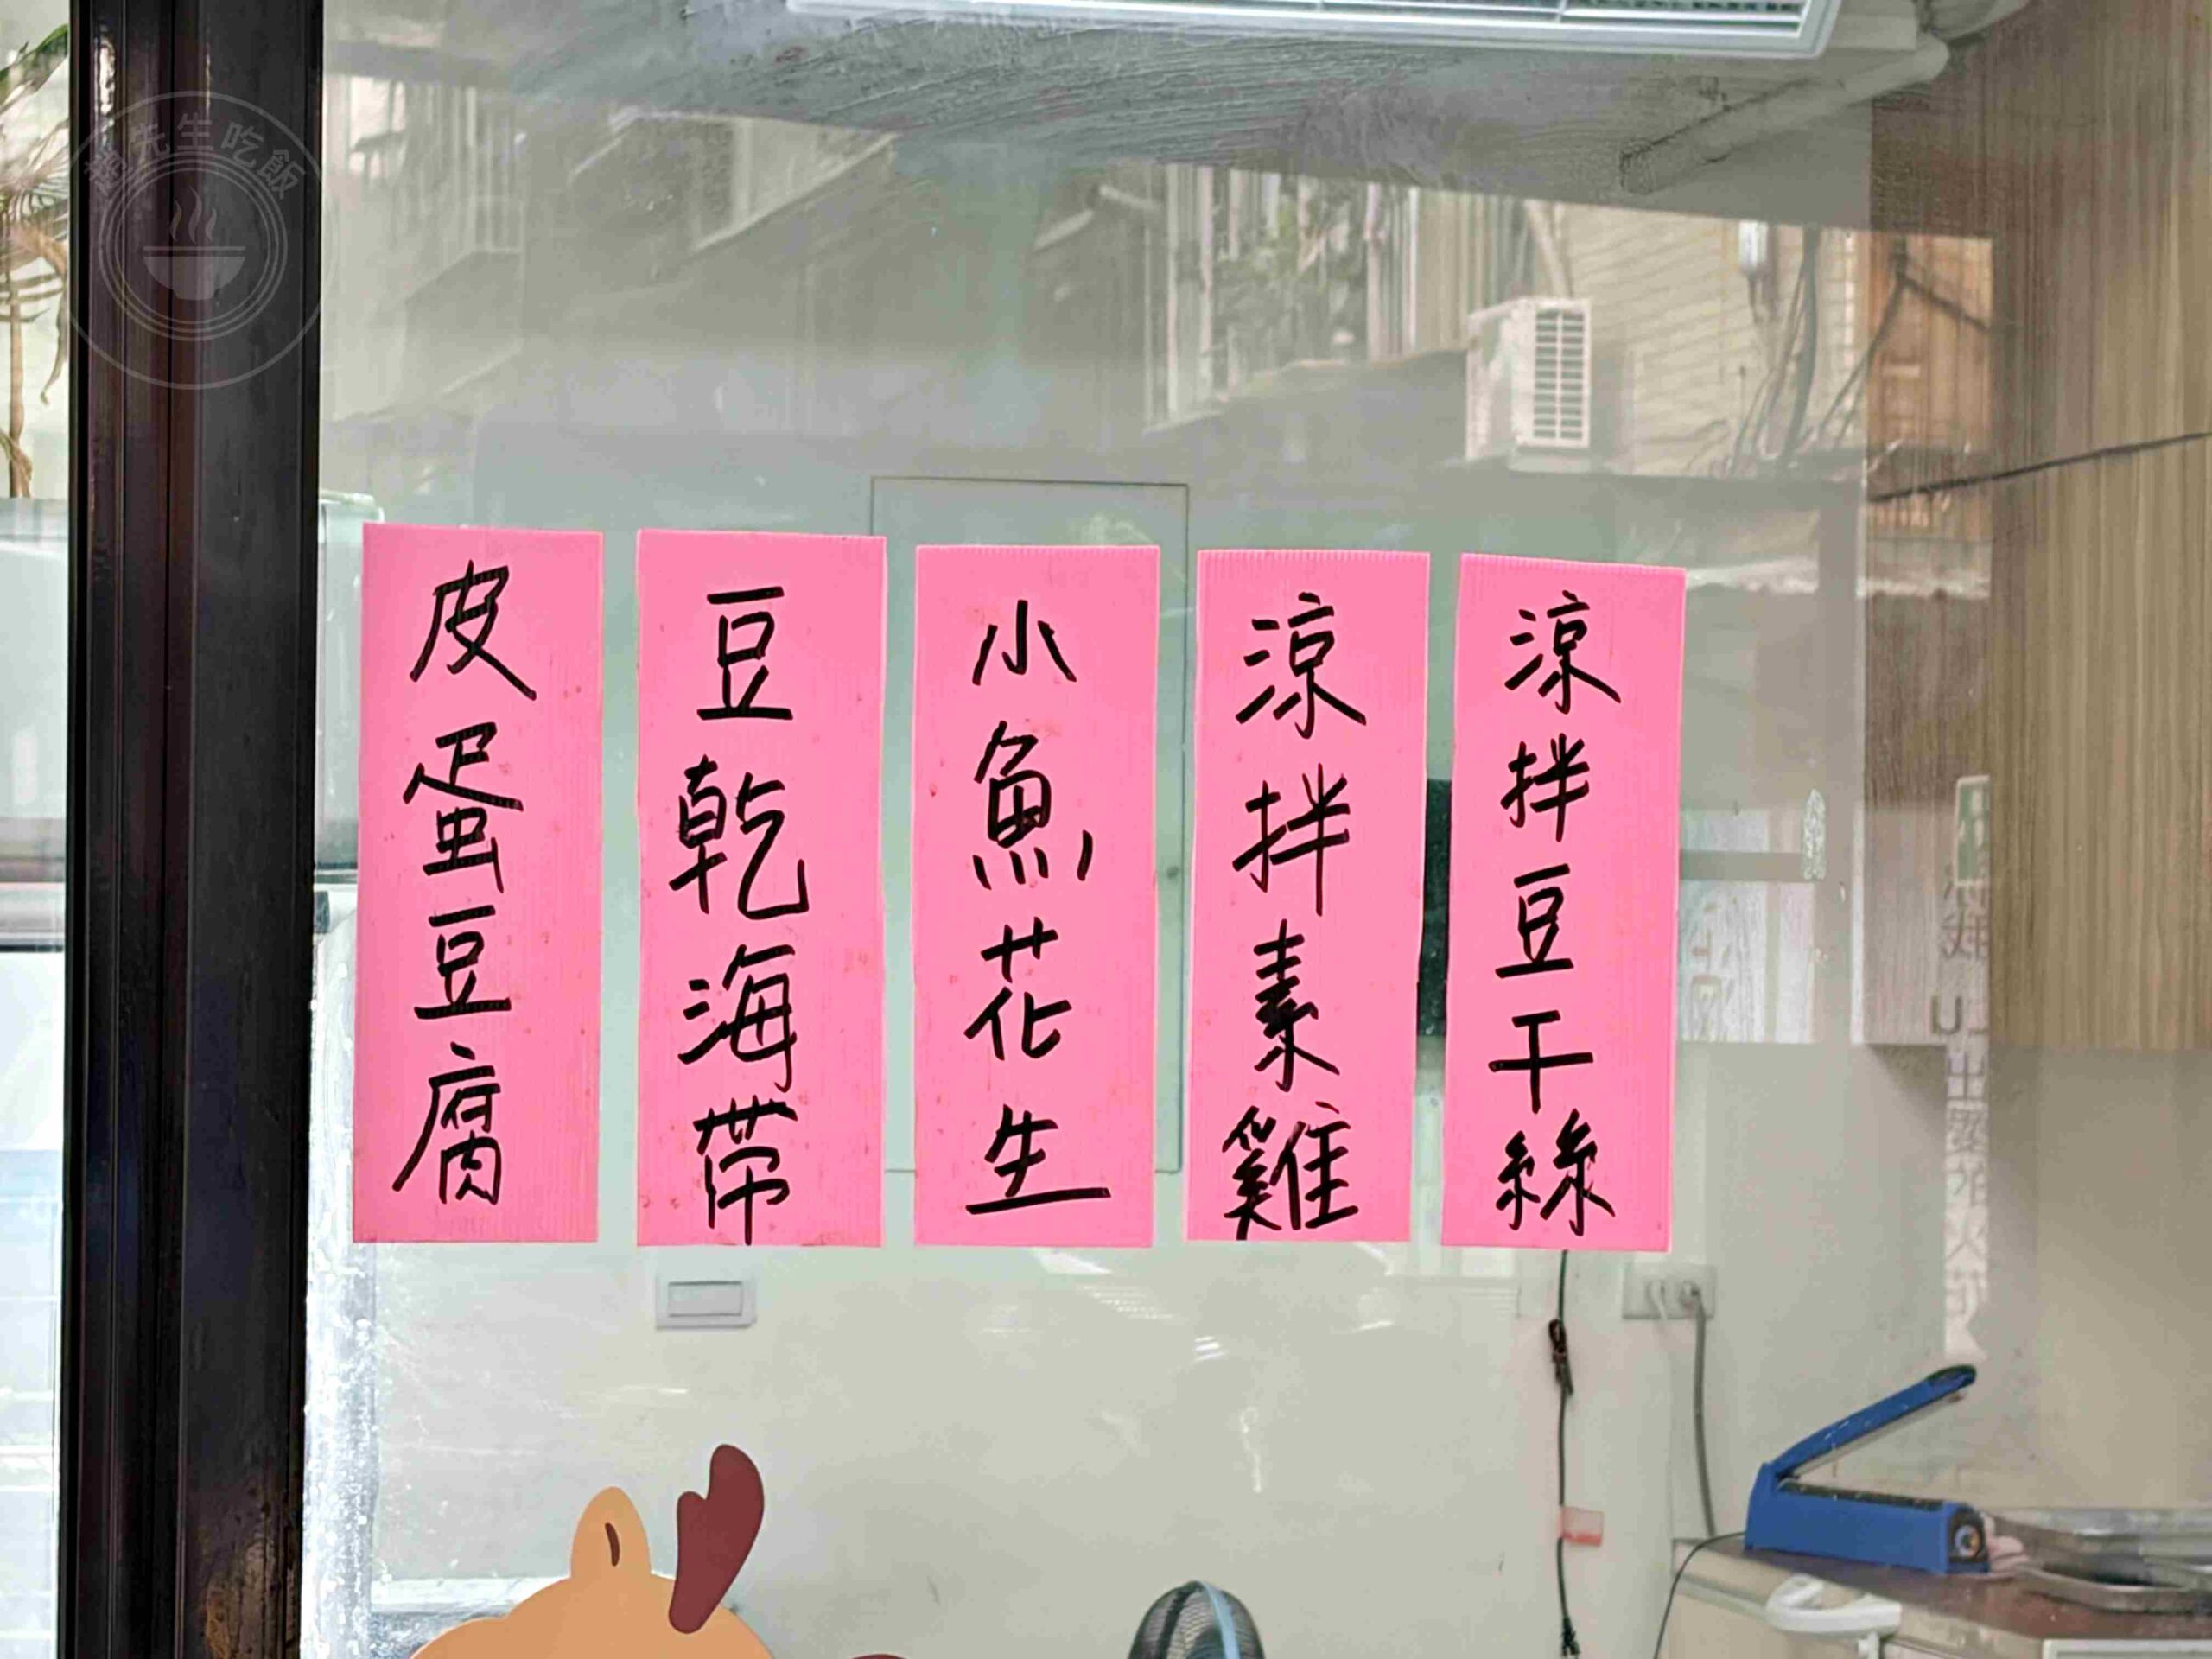 涼拌豆干絲
涼拌素雞
小魚花生
豆乾海帶
皮蛋豆腐
先生吃飯